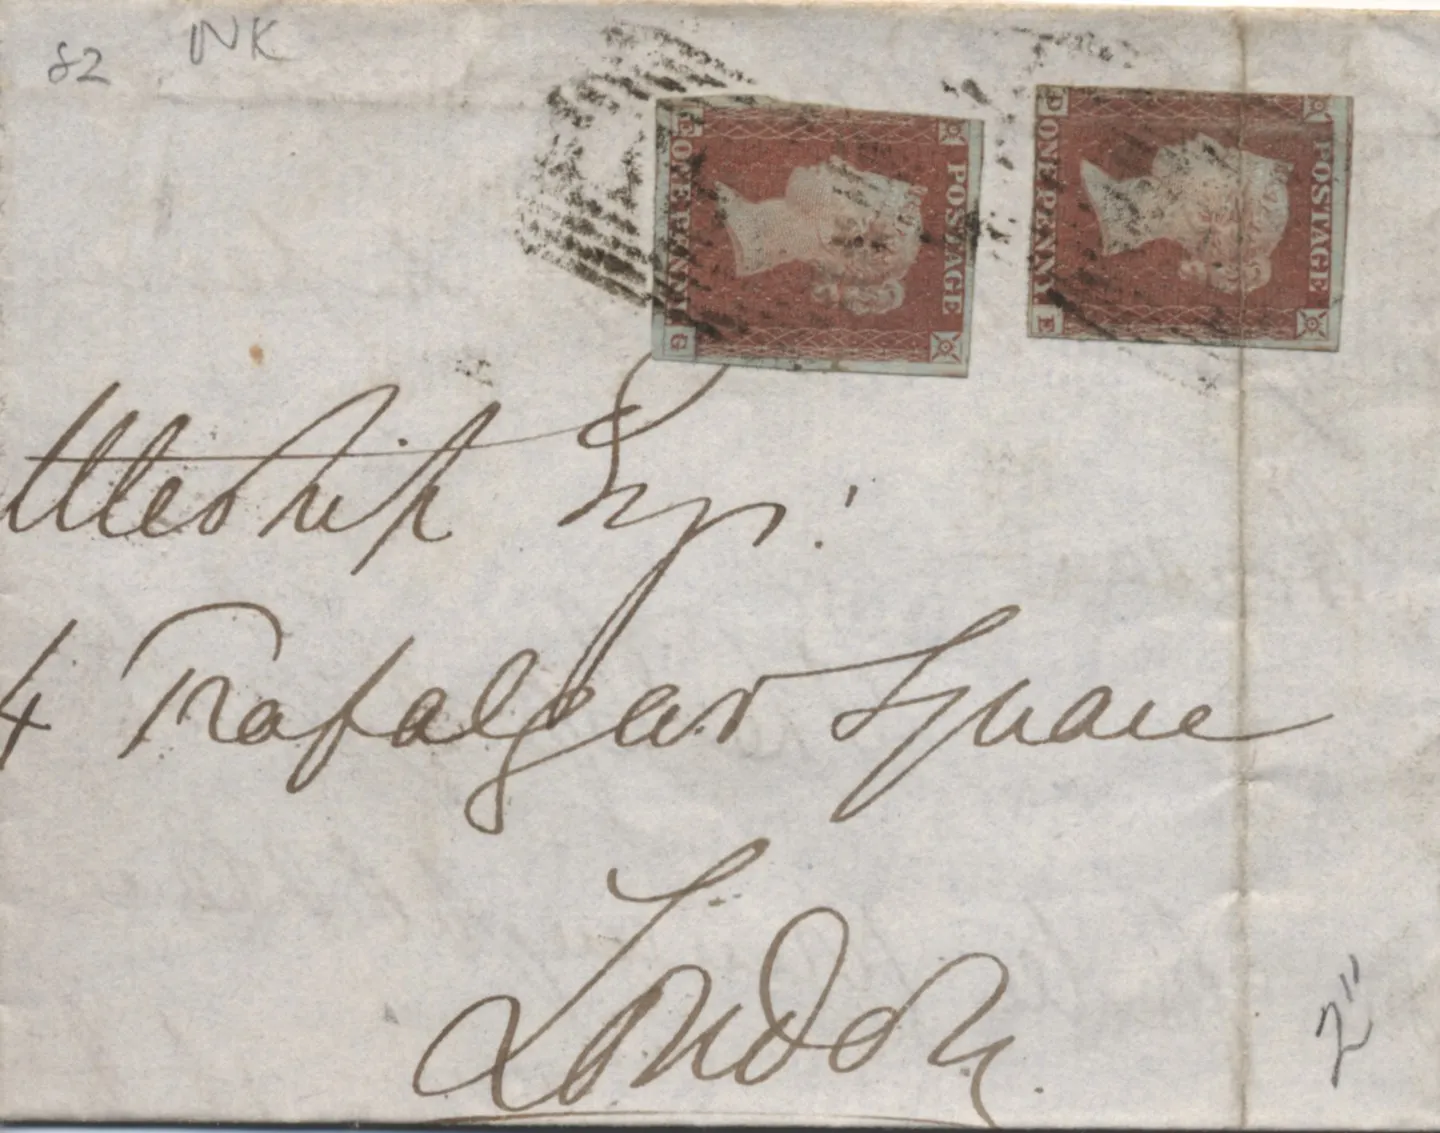 82 INK
POSTAGE
ONE PENNY.
G
POSTAGE
ONE PENNY.
D E
ttleship Esqr.
4 Trafalgar Square
London
2"